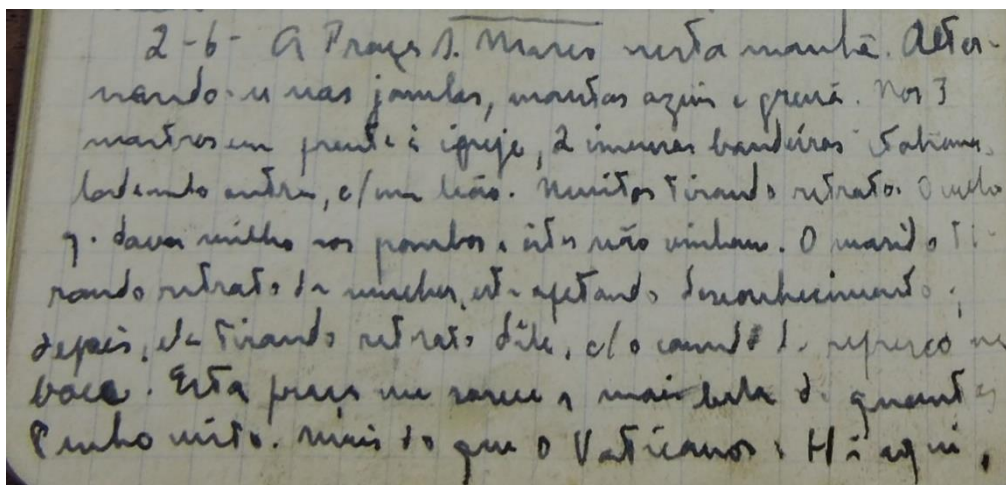 2-6- A Praça S. Marco nesta manhã. Alter-
nando-se nas janelas, mantas azuis e grená. Nos 3
mastros em frente à igreja, 2 imensas bandeiras italianas
ladeando outra, c/ um leão. Muitos tirando retratos. O velho
q. dava milho aos pombos e êstes não vinham. O marido ti-
rando retrato da mulher, esta afetando desconhecimento;
depois, ela tirando retrato dêle, c/ o canudo de refresco na
boca. Esta praça me parece a mais bela de quantas
tenho visto. Mais do que o Vaticano: Há aqui,